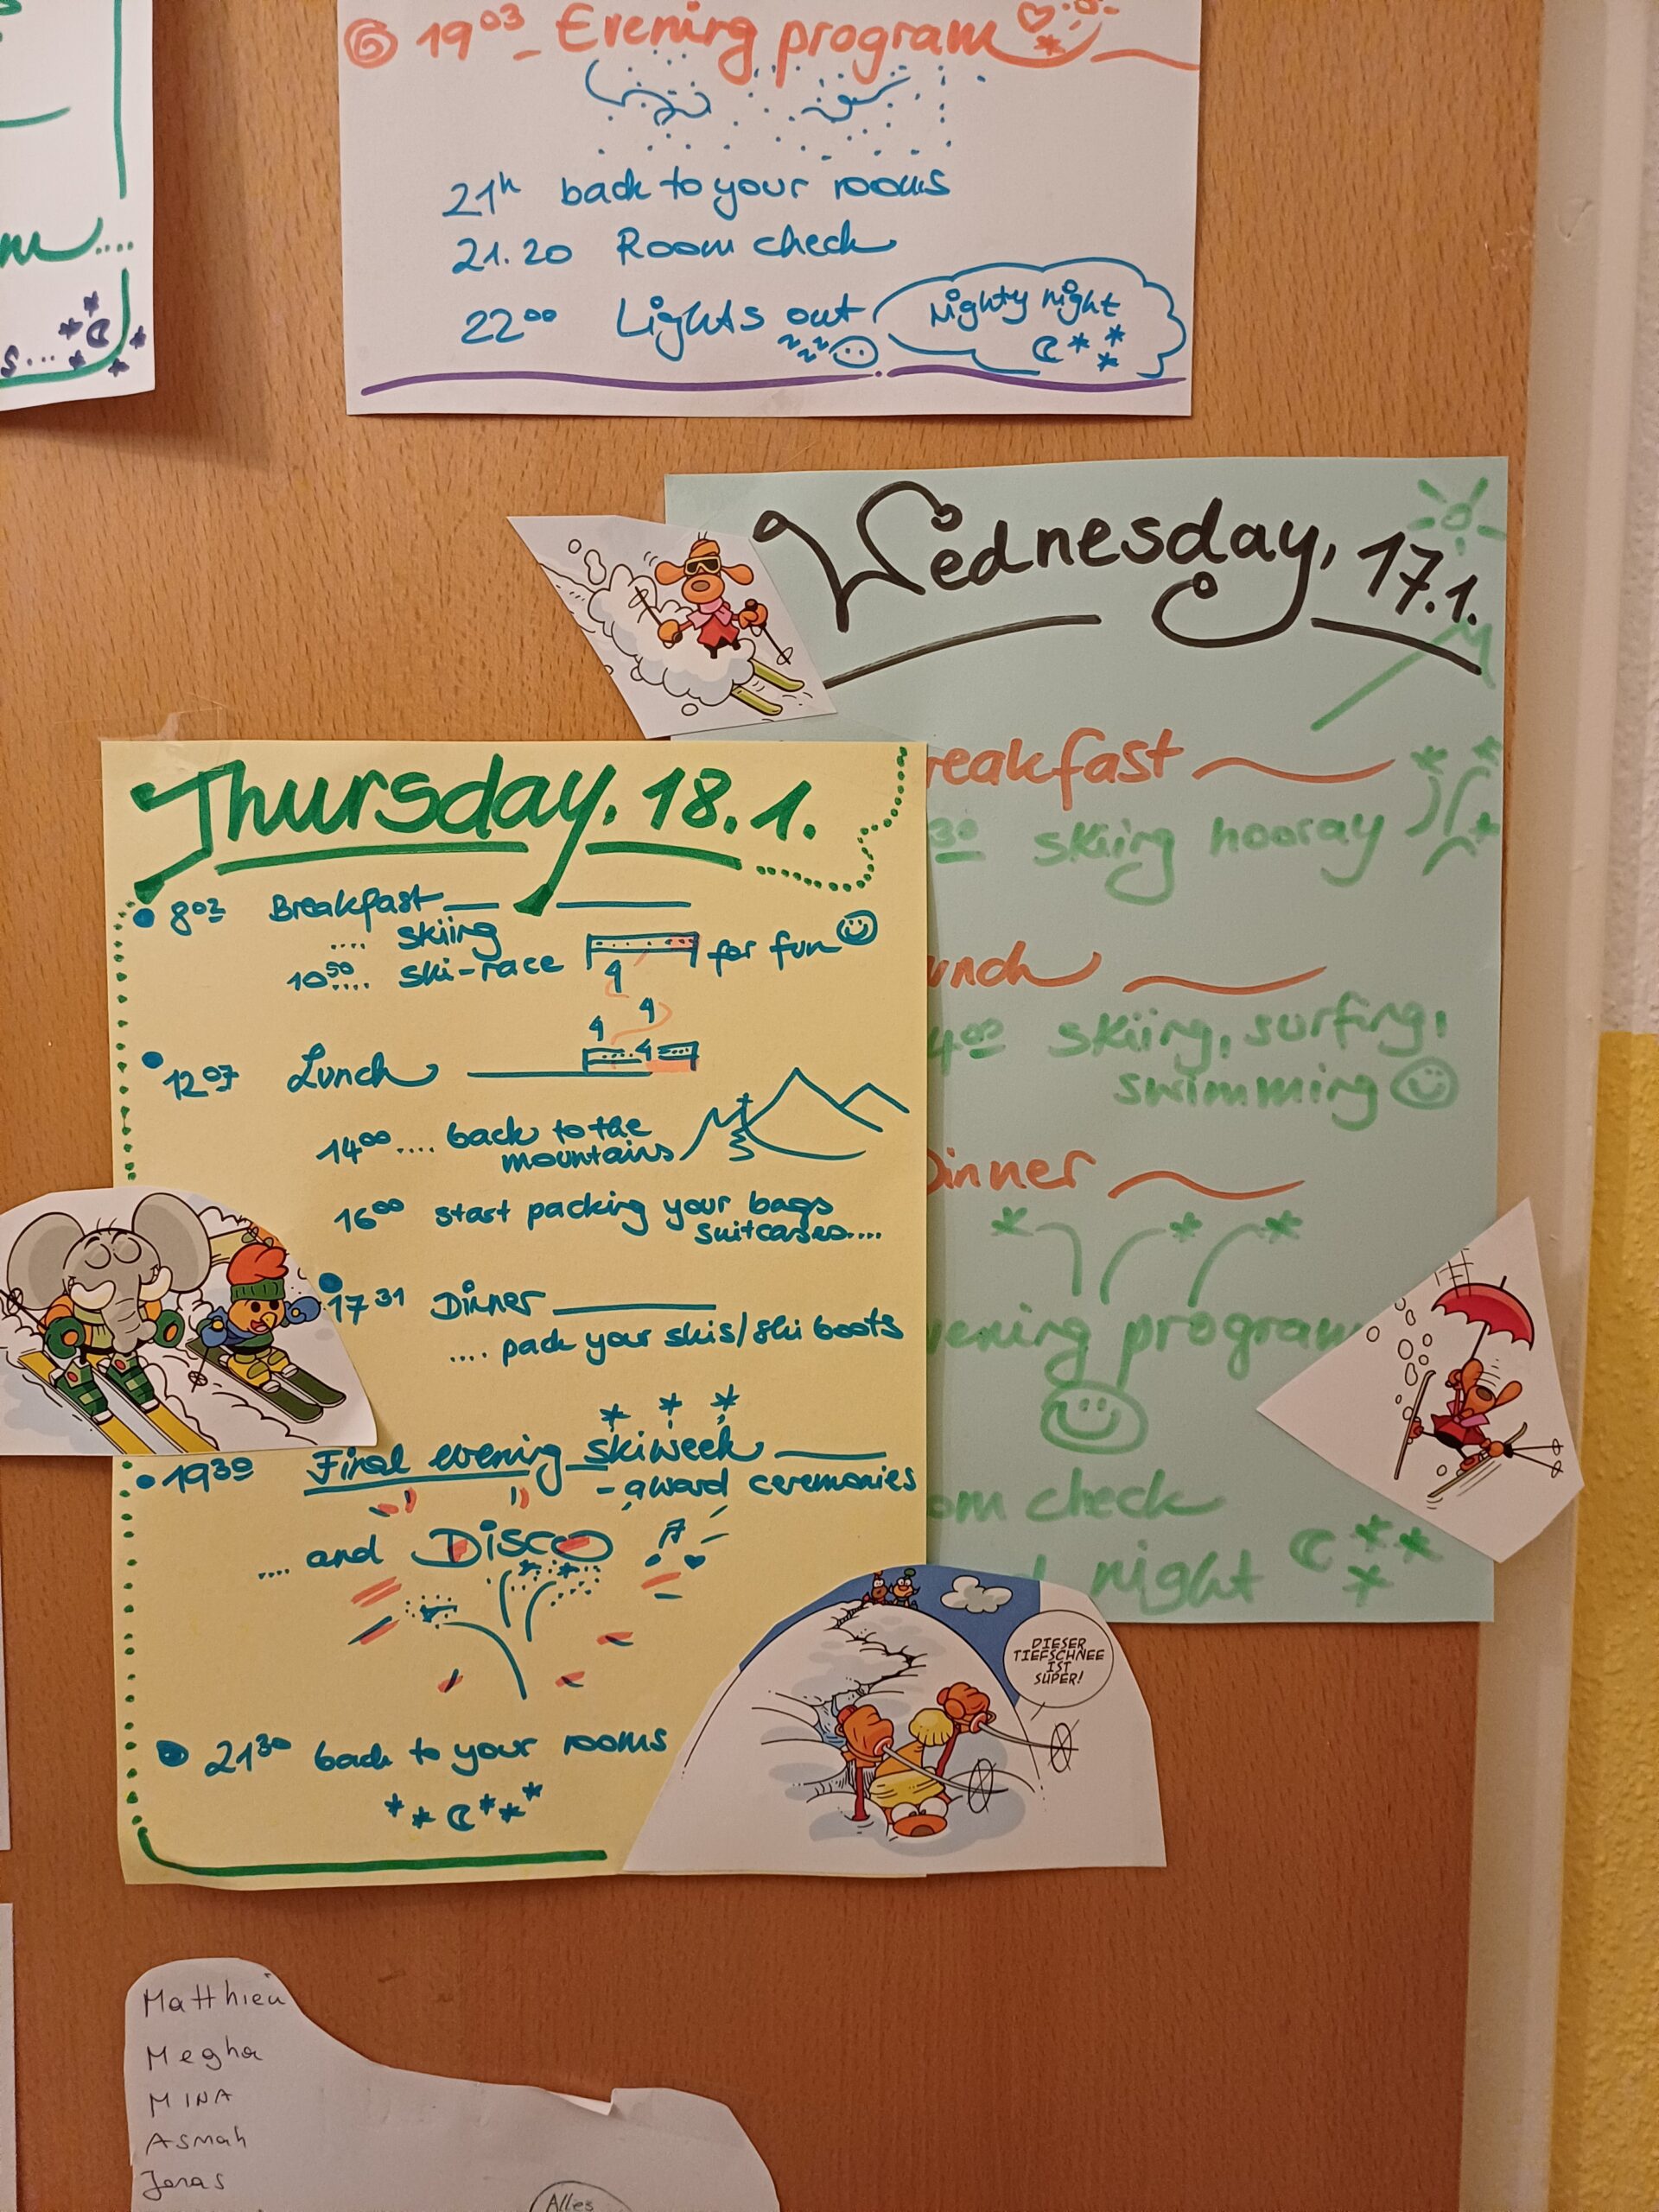 m....
s...
⑥ 19⁰³ - Evening program
21ʰ back to your rooms
21.20 Room check
22⁰⁰ Lights out
zzzz
Nighty night
Wednesday, 17.1.
reakfast
30 skiing hooray
unch
4⁰⁰ skiing, surfing,
swimming
Dinner
vening program
om check
d night
Thursday, 18.1.
• 8⁰² Breakfast
.... skiing
10⁵⁰.... ski-race for fun
• 12⁰⁷ Lunch
14⁰⁰.... back to the
mountains
16⁰⁰ start packing your bags
suitcases....
• 17³¹ Dinner
.... pack your skis/ski boots
• 19³⁰ Final evening skiweek
- award ceremonies
.... and Disco
• 21³⁰ back to your rooms
DIESER
TIEFSCHNEE
IST
SUPER!
Matthieu
Megha
MINA
Asmah
Jonas
Alles